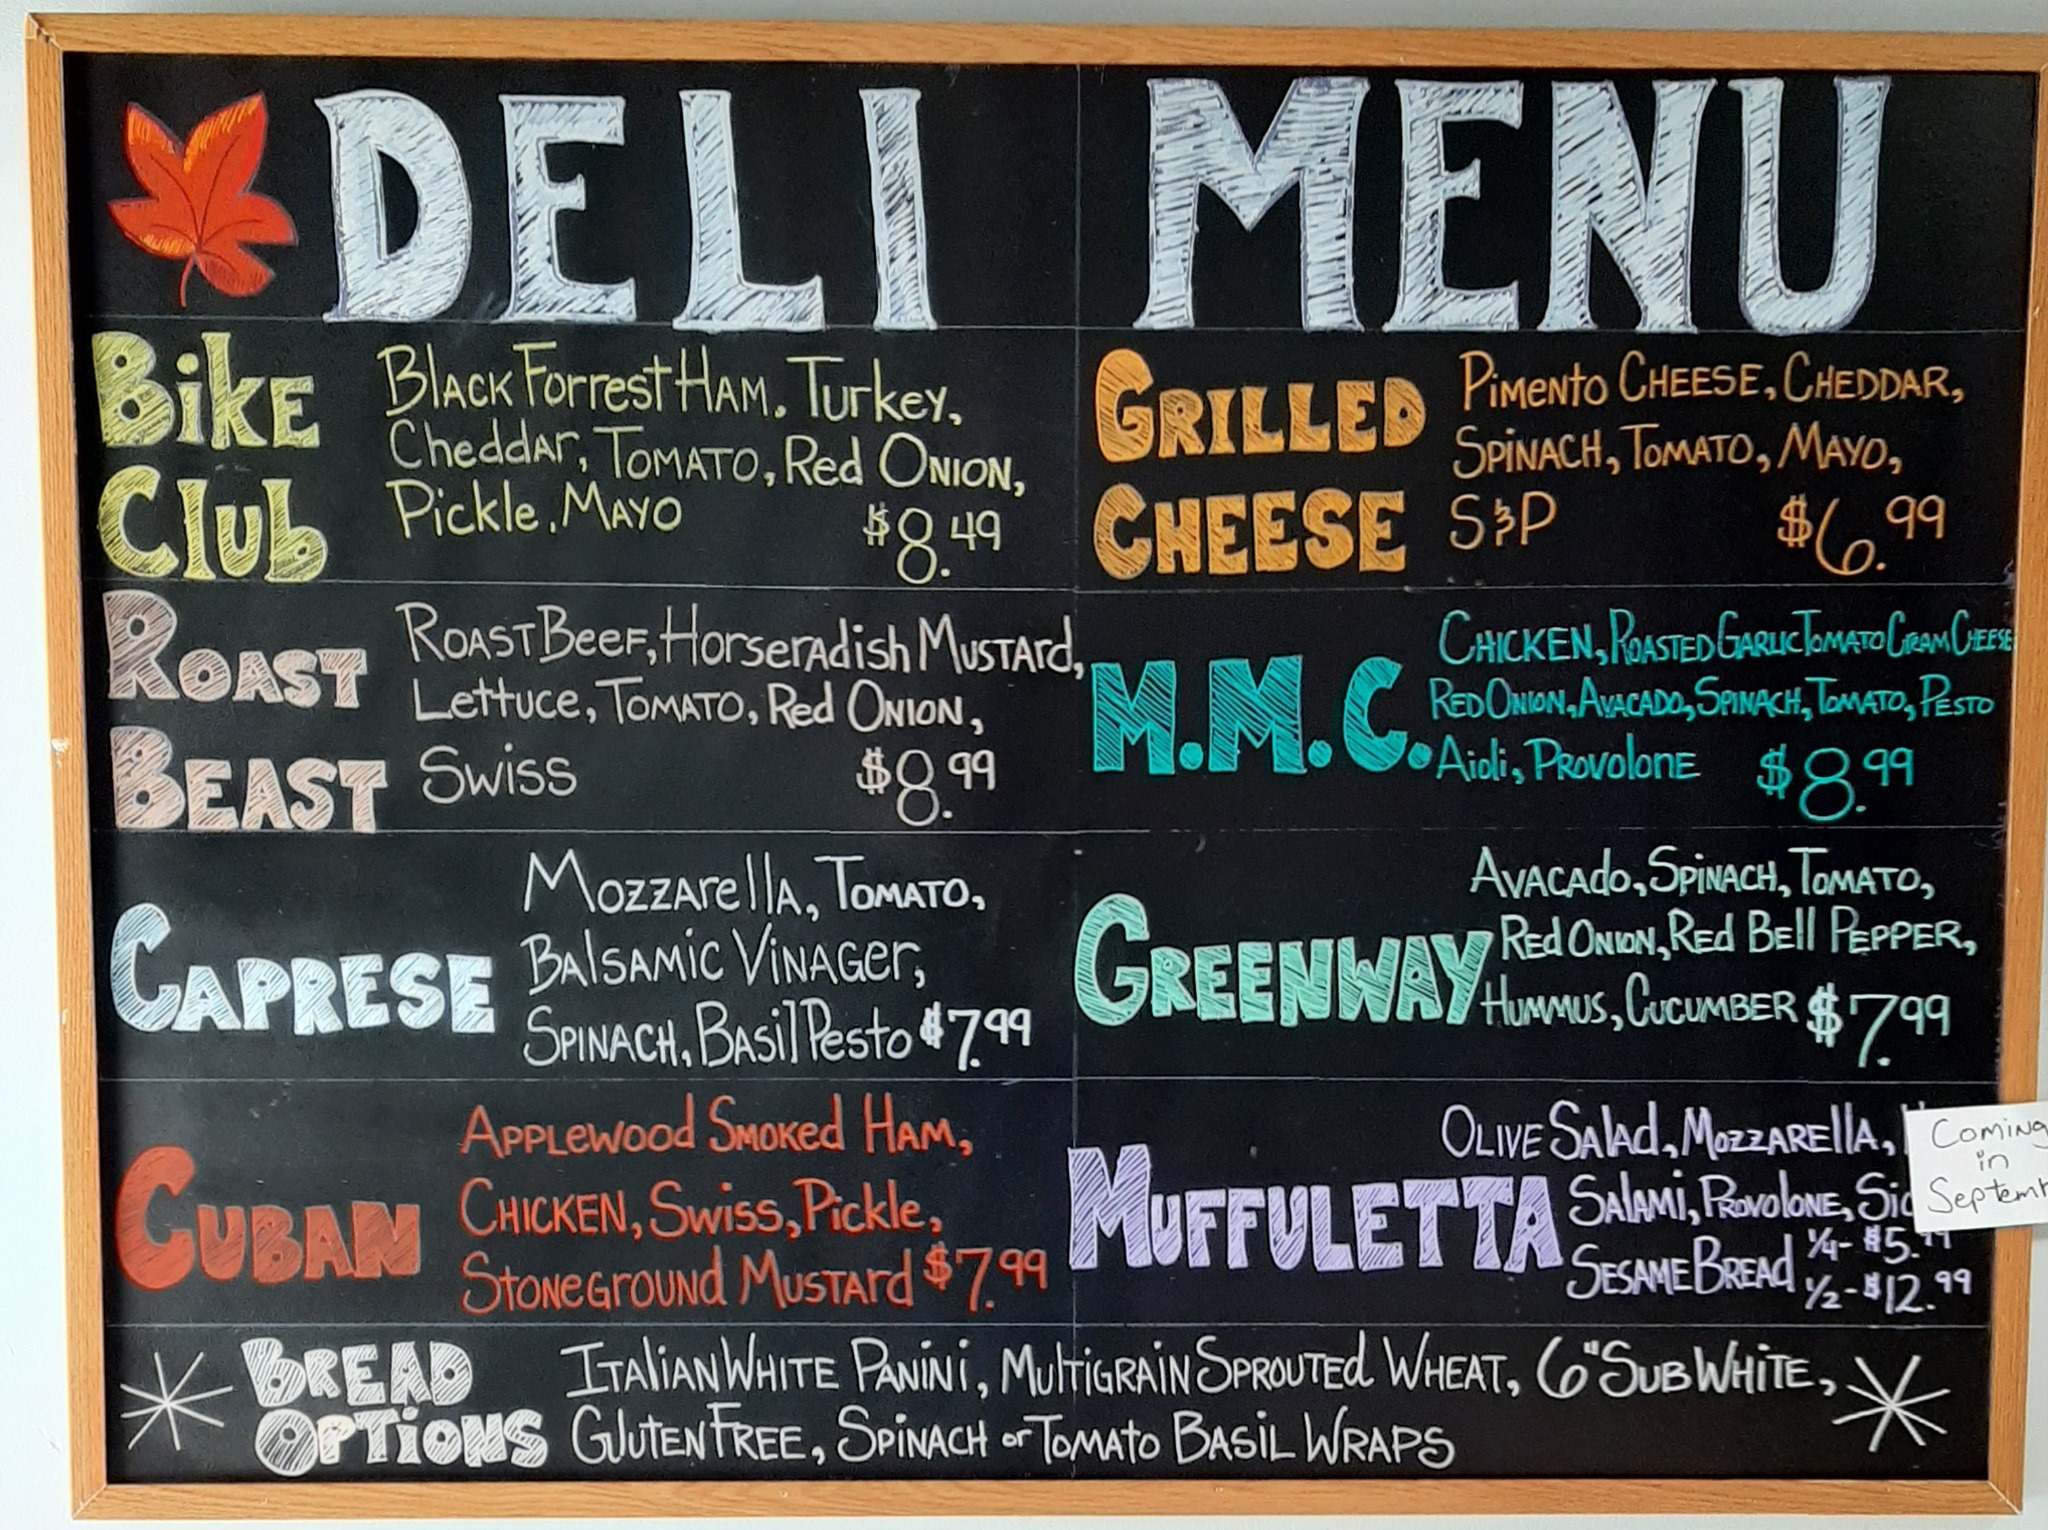 DELI MENU
Bike Club
Black Forrest Ham, Turkey,
Cheddar, Tomato, Red Onion,
Pickle, Mayo $8.49
Roast Beast
Roast Beef, Horseradish Mustard,
Lettuce, Tomato, Red Onion,
Swiss $8.99
Caprese
Mozzarella, Tomato,
Balsamic Vinager,
Spinach, Basil Pesto $7.99
Cuban
Applewood Smoked Ham,
Chicken, Swiss, Pickle,
Stoneground Mustard $7.99
Grilled Cheese
Pimento Cheese, Cheddar,
Spinach, Tomato, Mayo,
S&P $6.99
M.M.C.
Chicken, Roasted Garlic Tomato Cream Cheese
Red Onion, Avacado, Spinach, Tomato, Pesto
Aioli, Provolone $8.99
Greenway
Avacado, Spinach, Tomato,
Red Onion, Red Bell Pepper,
Hummus, Cucumber $7.99
Muffuletta
Olive Salad, Mozzarella,
Salami, Provolone,
Sesame Bread 1/4- $5.99
1/2- $12.99
Coming
in
Septem
Bread Options
Italian White Panini, Multigrain Sprouted Wheat, 6" Sub White,
Gluten Free, Spinach or Tomato Basil Wraps